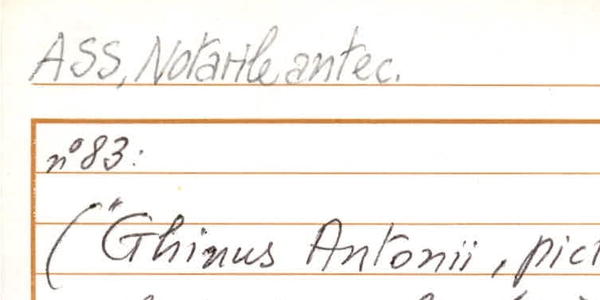 ASS, Notarile antec.
n° 83:
("Ghinus Antonii, pict